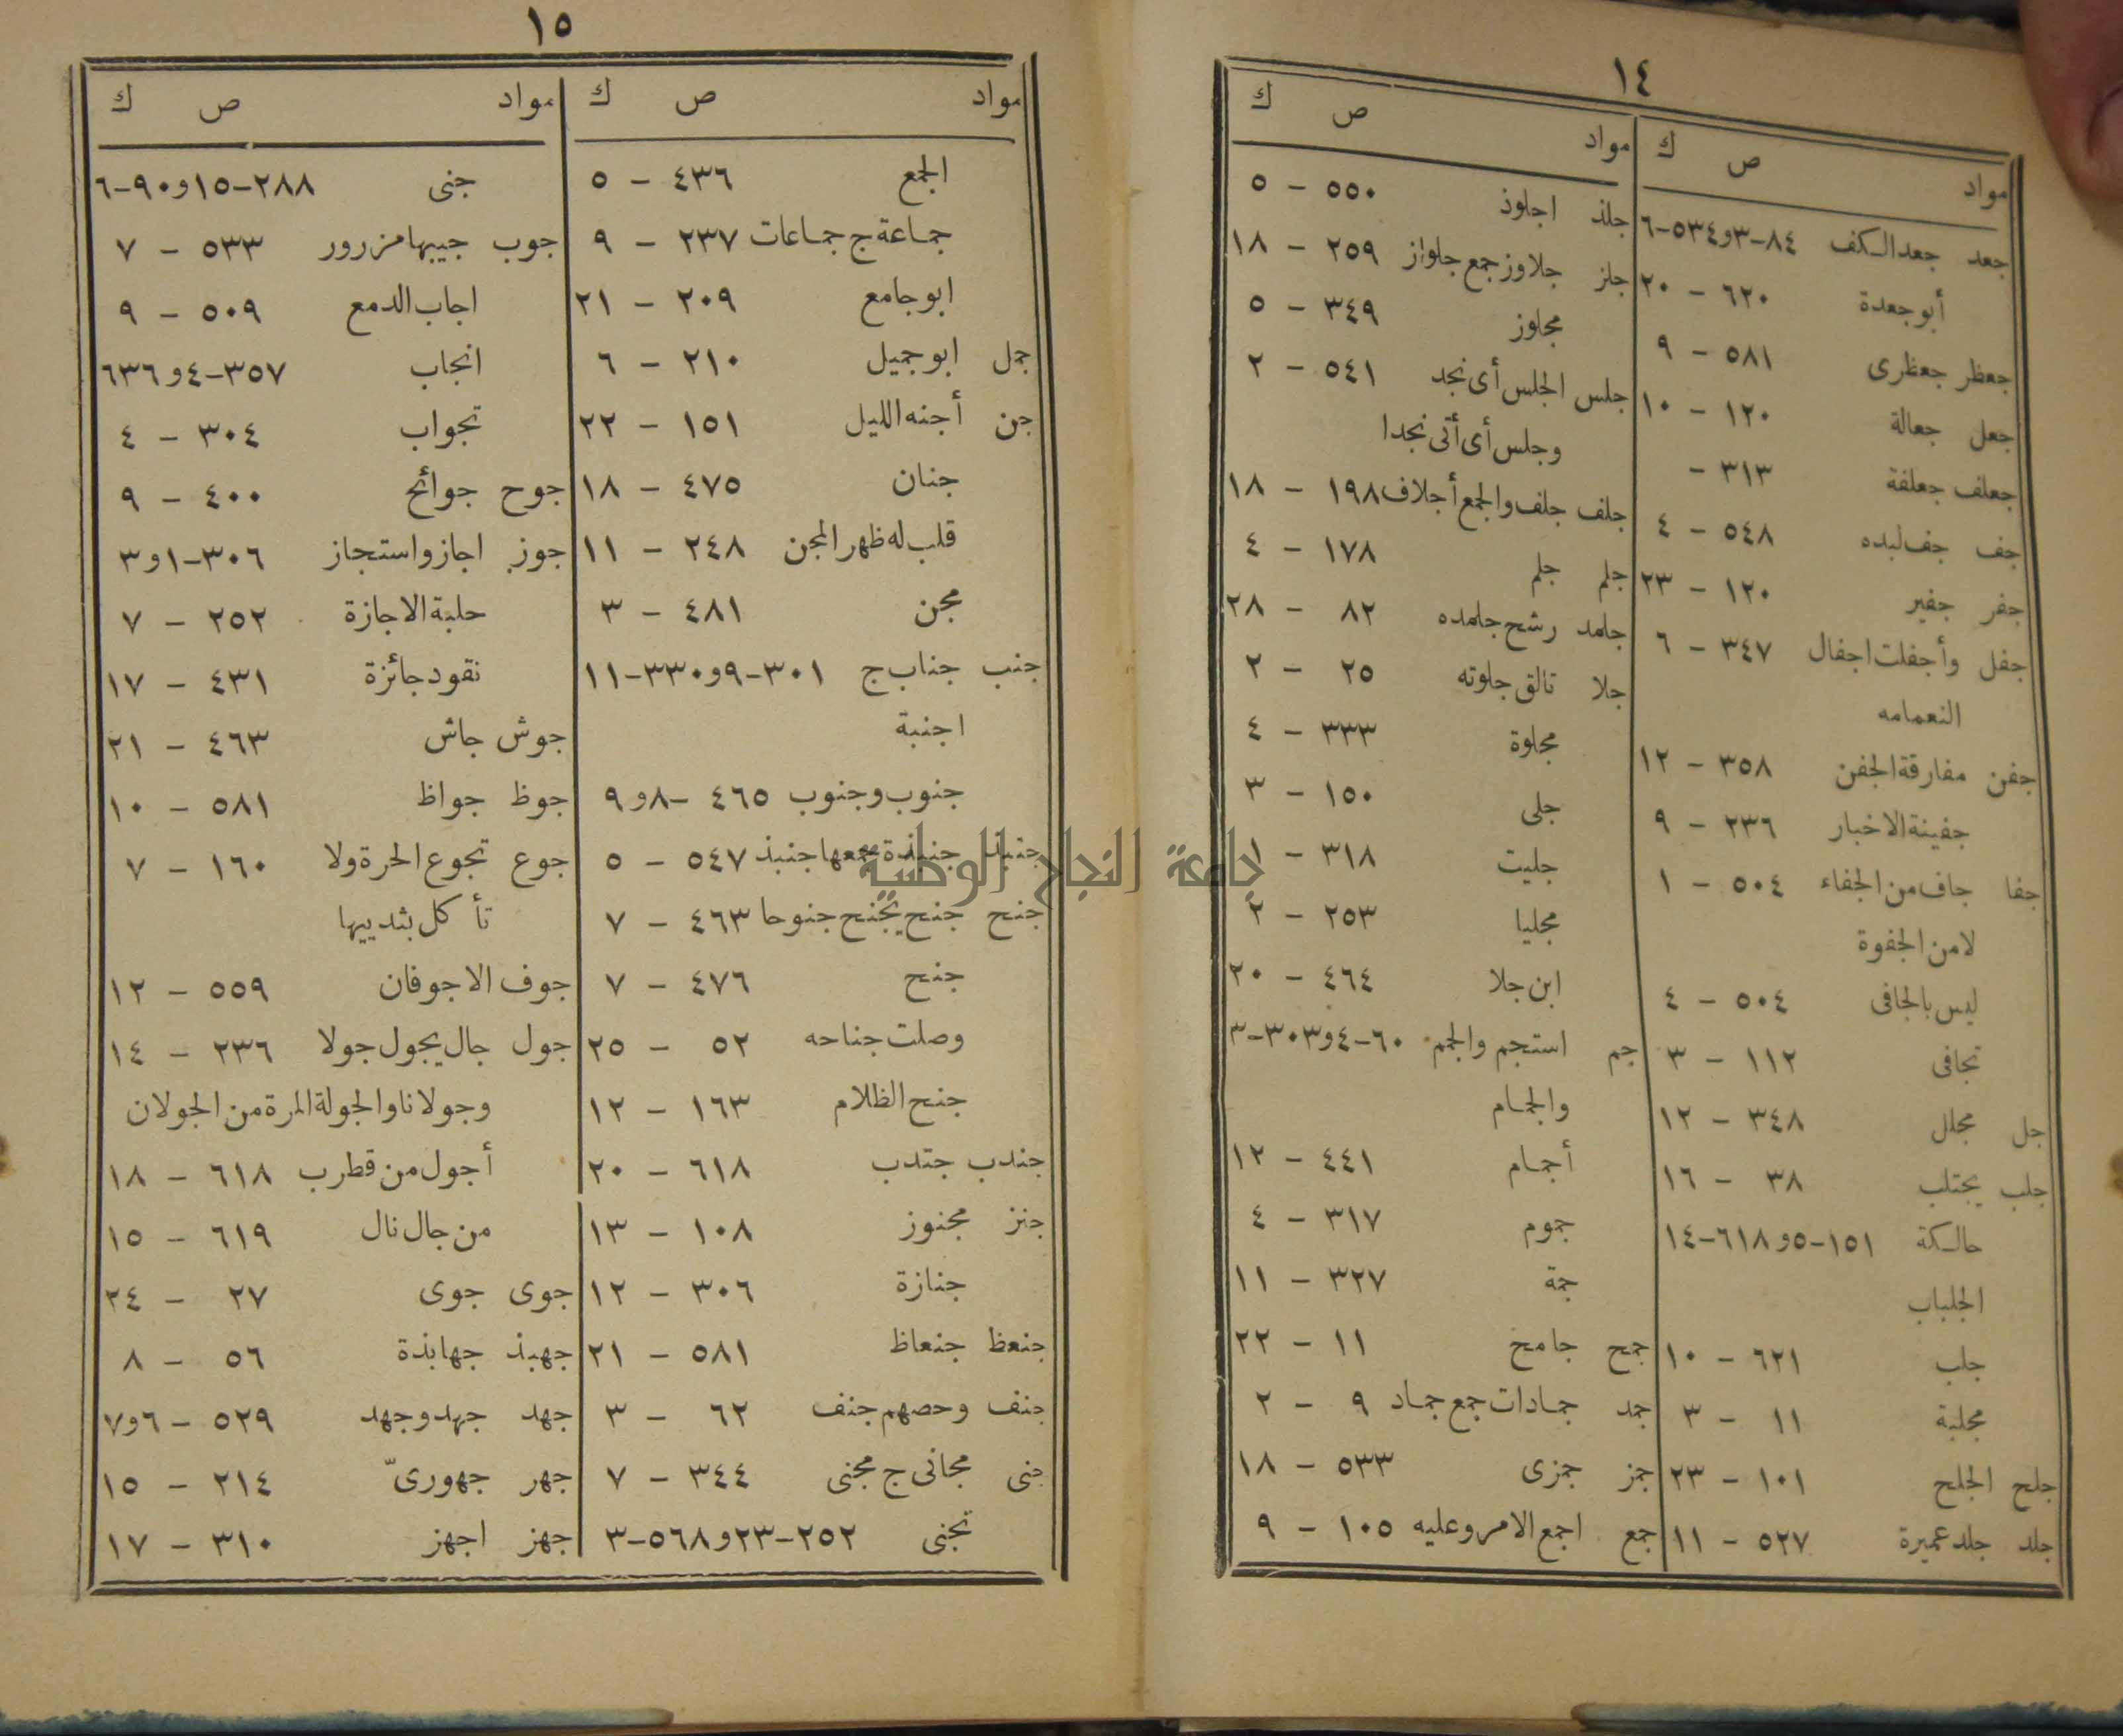 ١٤
مواد ص ك
جعد جعد الكف ٨٤-٣ و٥٣٤-٦
أبو جعدة ٦٢٠ - ٢٠
جعظر جعظرى ٥٨١ - ٩
جعل جعالة ١٢٠ - ١٠
جعلف جعلفة ٣١٣ -
جف جف لبده ٥٤٨ - ٤
جفر جفير ١٢٠ - ٢٣
جفل وأجفلت اجفال ٣٤٧ - ٦
النعمامه
جفن مفارقة الجفن ٣٥٨ - ١٢
جفينة الاخبار ٢٣٦ - ٩
جفا جاف من الجفاء ٥٠٤ - ١
لا من الجفوة
ليس بالجافى ٥٠٤ - ٤
تجافى ١١٢ - ٣
جل مجلل ٣٤٨ - ١٢
جلب يجتلب ٣٨ - ١٦
حالكة ١٥١-٥ و٦١٨-١٤
الجلباب
جلب ٦٢١ - ١٠
مجلبة ١١ - ٣
جلح الجلح ١٠١ - ٢٣
جلد جلد عميرة ٥٢٧ - ١١
مواد ص ك
جلذ اجلوذ ٥٥٠ - ٥
جلز جلاوز جمع جلواز ٢٥٩ - ١٨
مجاوز ٣٤٩ - ٥
جلس الجلس أى نجد ٥٤١ - ٢
وجلس أى أتى نجدا
جلف جلف والجمع أجلاف ١٩٨ - ١٨
جلم جلم ١٧٨ - ٤
جلمد رشح جلمده ٨٢ - ٢٨
جلا تالق جلوته ٢٥ - ٢
مجلوة ٣٣٣ - ٤
جلى ١٥٠ - ٣
جليت ٣١٨ - ١
مجليا ٢٥٣ - ٢
ابن جلا ٤٦٤ - ٢٠
جم استجم والجم ٦٠-٤ و٣٠٣-٣
والجمام
أجمام ٤٤١ - ١٢
جموم ٣١٧ - ٤
جمة ٣٢٧ - ١١
جمح جامح ١١ - ٢٢
جمد جمادات جمع جماد ٩ - ٢
جمز جمزى ٥٣٣ - ١٨
جمع اجمع الامر وعليه ١٠٥ - ٩
١٥
مواد ص ك
الجمع ٤٣٦ - ٥
جماعة ج جماعات ٢٣٧ - ٩
ابو جامع ٢٠٩ - ٢١
جمل ابو جميل ٢١٠ - ٦
جن أجنه الليل ١٥١ - ٢٢
جنان ٤٧٥ - ١٨
قلب له ظهر المجن ٢٤٨ - ١١
مجن ٤٨١ - ٣
جنب جناب ج ٣٠١-٩ و٣٣٠-١١
اجنبة
جنوب وجنوب ٤٦٥ -٨ و٩
جنبذ جنبذة جمعها جنبذ ٥٤٧ - ٥
جنح جنح يجنح جنوحا ٤٦٣ - ٧
جنح ٤٧٦ - ٧
وصلت جناحه ٥٢ - ٢٥
جنح الظلام ١٦٣ - ١٢
جندب جتدب ٦١٨ - ٢٠
جنز مجنوز ١٠٨ - ١٣
جنازة ٣٠٦ - ١٢
جنعظ جنعاظ ٥٨١ - ٢١
جنف وحصهم جنف ٦٢ - ٣
جنى مجانى ج مجنى ٣٤٤ - ٧
تجنى ٢٥٢-٢٣ و٥٦٨-٣
مواد ص ك
جنى ٢٨٨-١٥ و٩٠-٦
جوب جيبها مزرور ٥٣٣ - ٧
اجاب الدمع ٥٠٩ - ٩
انجاب ٣٥٧-٤ و٦٣٦
تجواب ٣٠٤ - ٤
جوح جوائح ٤٠٠ - ٩
جوز اجاز واستجاز ٣٠٦-١ و٣
حلبة الاجازة ٢٥٢ - ٧
نقود جائزة ٤٣١ - ١٧
جوش جاش ٤٦٣ - ٢١
جوظ جواظ ٥٨١ - ١٠
جوع تجوع الحرة ولا ١٦٠ - ٧
تأكل بثدييها
جوف الاجوفان ٥٥٩ - ١٢
جول جال يجول جولا ٢٣٦ - ١٤
وجولانا والجولة المرة من الجولان
أجول من قطرب ٦١٨ - ١٨
من جال نال ٦١٩ - ١٥
جوى جوى ٢٧ - ٢٤
جهبذ جهابذة ٥٦ - ٨
جهد جهد وجهد ٥٢٩ - ٦ و٧
جهر جهورىّ ٢١٤ - ١٥
جهز اجهز ٣١٠ - ١٧
جامعة النجاح الوطنية